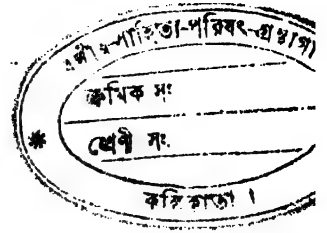 বঙ্গীয়-সাহিত্য-পরিষৎ-গ্রন্থাগা
ক্রমিক সং
শ্রেণী সং.
কলিকাতা ।